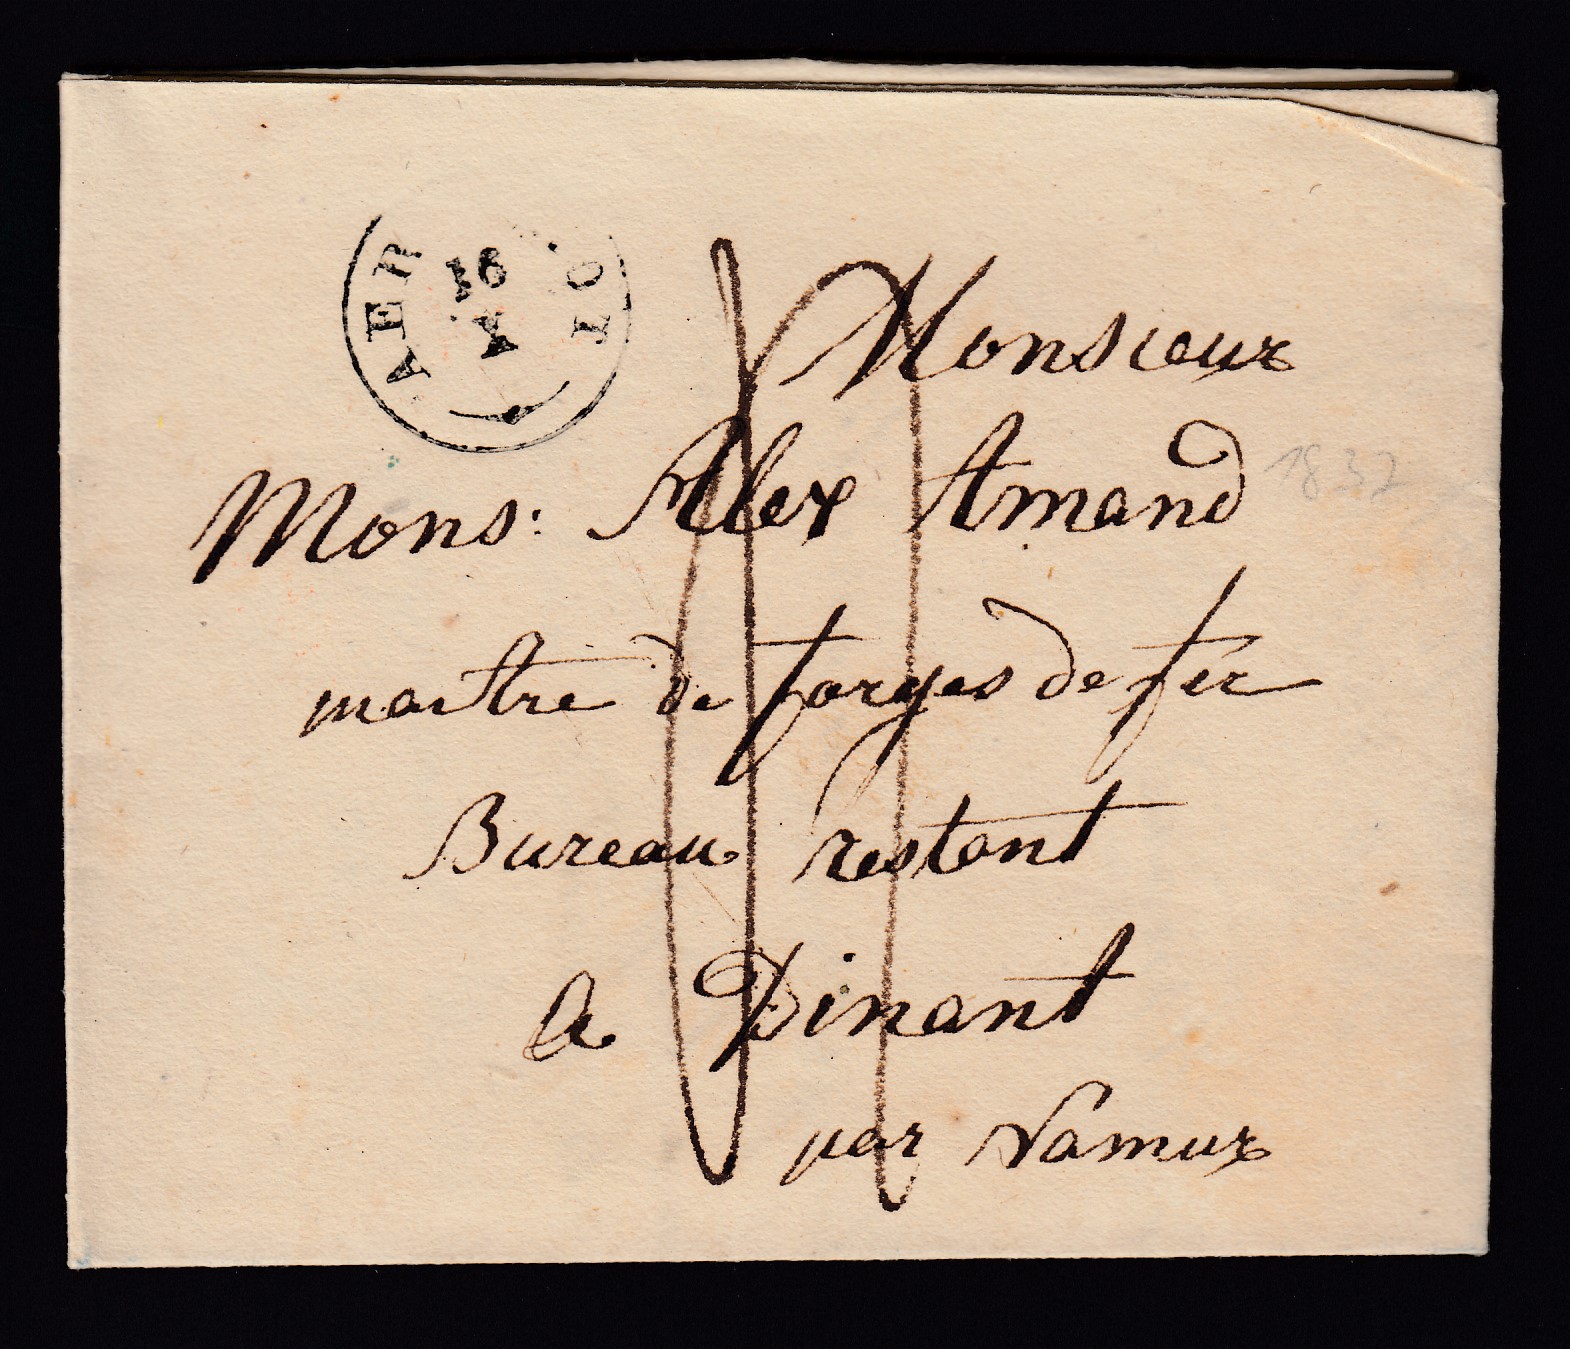 AER
16
A
Monsieur
Mons: Alex Amand
1837
maitre de forges de fer
Bureau restant
a Dinant
par Namur